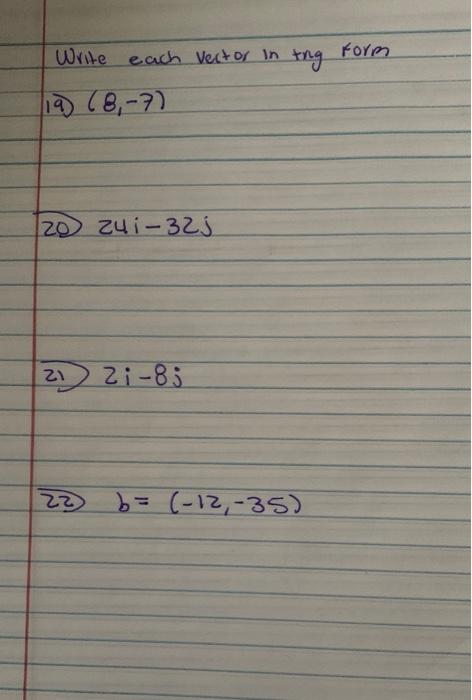 Write each vector in trig form
19) (8,-7)
20) 24i-32j
21) 2i-8j
22) b= (-12,-35)